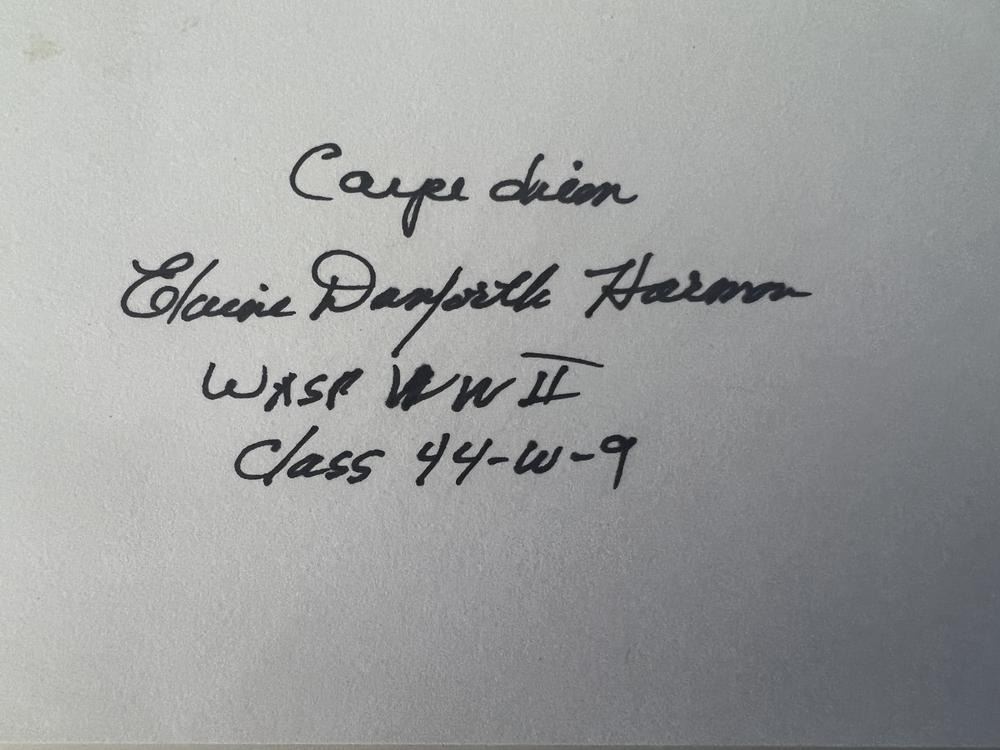 Carpe diem
Elaine Danforth Harmon
WASP WW II
Class 44-W-9